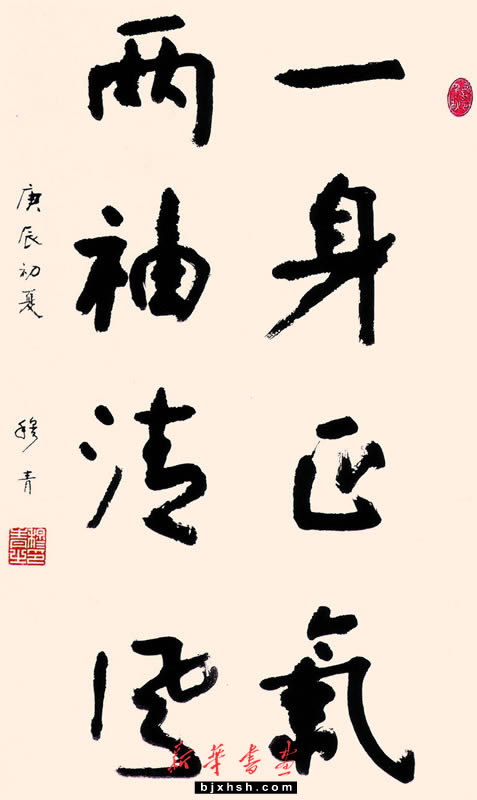 一身正氣
两袖清风
庚辰初夏 穆青
新华书画
bjxhsh.com